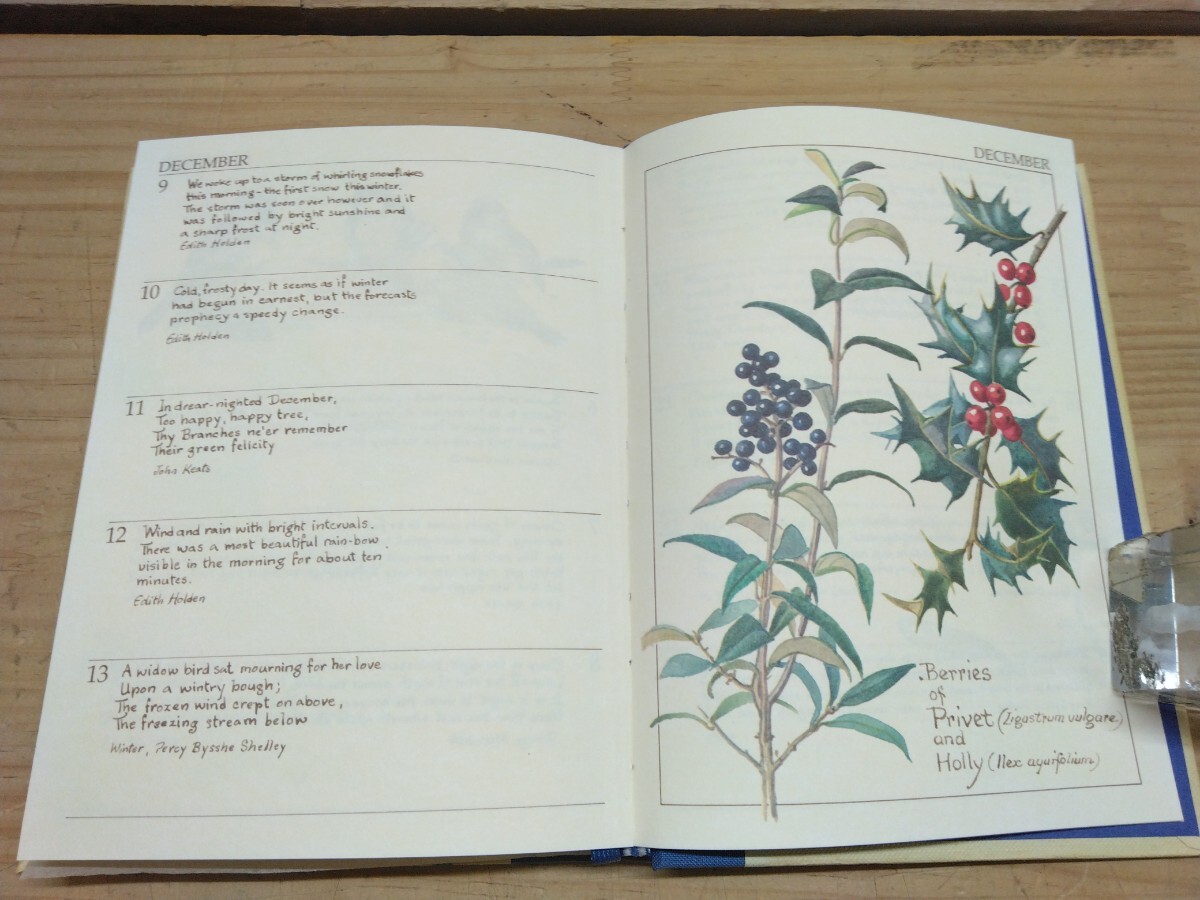 DECEMBER
9 We woke up to a storm of whirling snowflakes
this morning - the first snow this winter.
The storm was soon over however and it
was followed by bright sunshine and
a sharp frost at night.
Edith Holden
10 Cold, frosty day. It seems as if winter
had begun in earnest, but the forecasts
prophecy a speedy change.
Edith Holden
11 In drear-nighted December,
Too happy, happy tree,
Thy Branches ne'er remember
Their green felicity
John Keats
12 Wind and rain with bright intervals.
There was a most beautiful rain-bow
visible in the morning for about ten
minutes.
Edith Holden
13 A widow bird sat mourning for her love
Upon a wintry bough;
The frozen wind crept on above,
The freezing stream below
Winter, Percy Bysshe Shelley
DECEMBER
Berries
of
Privet (Ligastrum vulgare)
and
Holly (Ilex aquifolium)